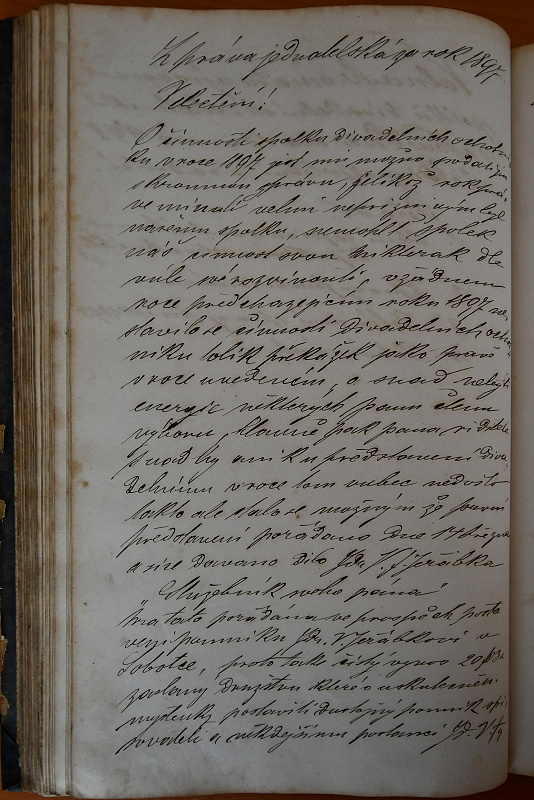 Zpráva jednatelská za rok 1897.
Velectění!
O činnosti spolku divadelních ochotní-
ků v roce 1897 jest mi možno podati jen
skromnou zprávu, jelikož rok prá-
vě minulý velmi nepříznivým byl
našemu spolku, nemohl spolek
náš činnost svou nikterak dle
vůle své rozvinouti, v žádném
roce předcházejícím roku 1897 ne-
stavilo se činnosti divadelních ochot-
níků tolik překážek jako právě
v roce uvedeném, a snad nebýti
energie některých pánů členů
výboru, hlavně pak pana ředitele
snad by ani ku představení diva-
delnímu v roce tom vůbec nedošlo
takto ale stalo se možným že první
představení pořádáno dne 17 března
a sice dáváno dílo Jdr. F. J. Jeřábka
„Služebník svého pána"
Hra tato pořádána ve prospěch posta
vení pomníku Jdr. V. Jeřábkovi v
Sobotce, proto také čistý výnos 20 zl
zaslaný Družstvu které o uskutečnění
myšlenky postaviti důstojný pomník spi
sovateli a někdejšímu poslanci